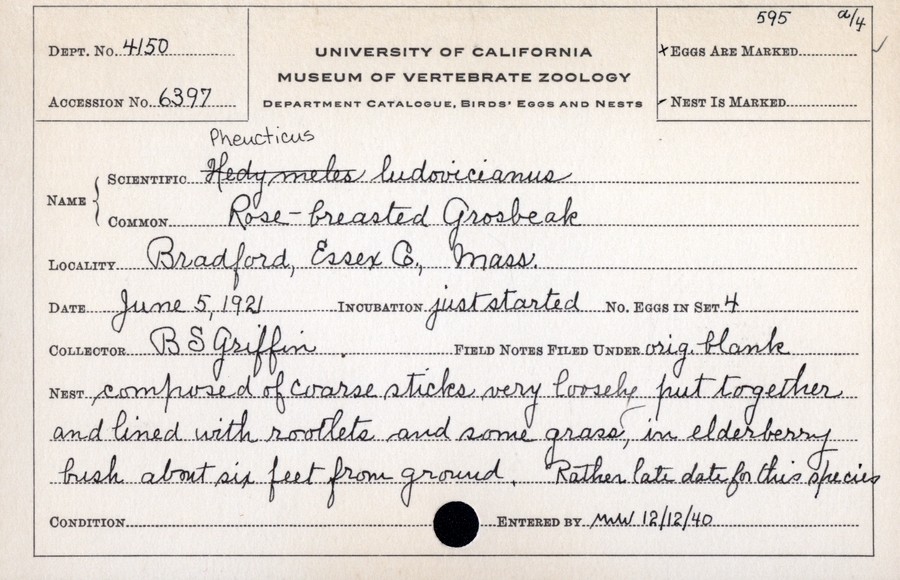 595 a/4
DEPT. NO. 4150
UNIVERSITY OF CALIFORNIA
x EGGS ARE MARKED
MUSEUM OF VERTEBRATE ZOOLOGY
ACCESSION NO. 6397
DEPARTMENT CATALOGUE, BIRDS' EGGS AND NESTS
- NEST IS MARKED
Pheucticus
NAME { SCIENTIFIC Hedymeles ludovicianus
COMMON Rose-breasted Grosbeak
LOCALITY Bradford, Essex Co., Mass.
DATE June 5, 1921 INCUBATION just started NO. EGGS IN SET 4
COLLECTOR B S Griffin. FIELD NOTES FILED UNDER orig. blank
NEST composed of coarse sticks very loosely put together
and lined with rootlets and some grass, in elderberry
bush about six feet from ground. Rather late date for this species
CONDITION ENTERED BY MWW 12/12/40